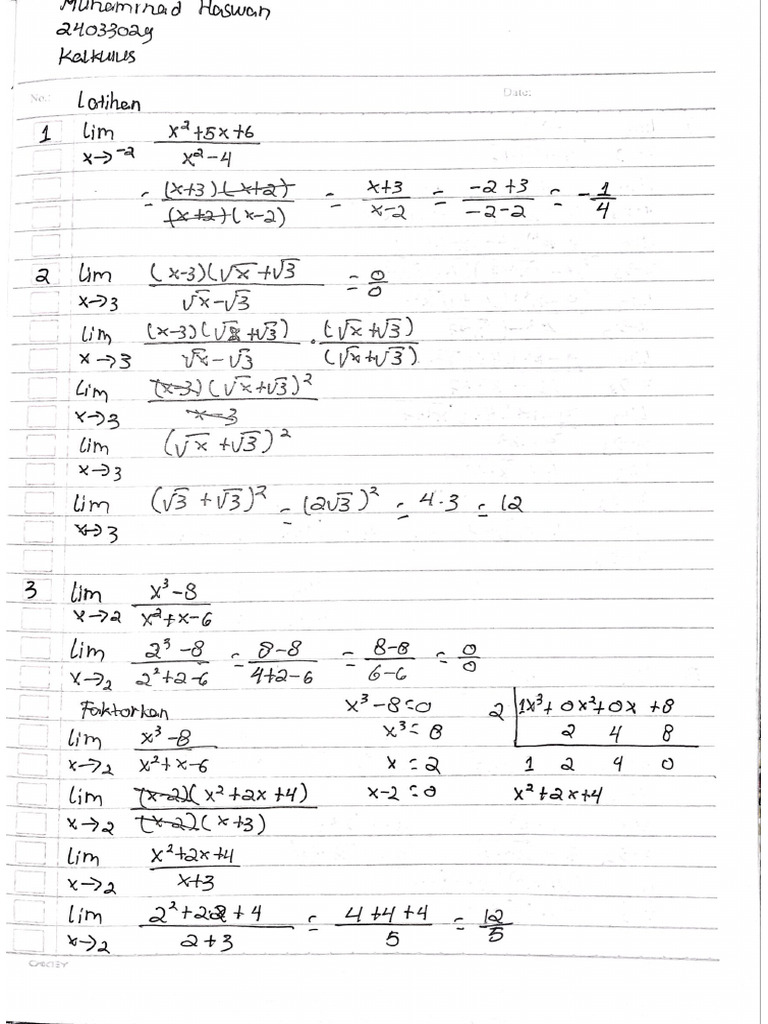 Muhammad Haswan
24033029
Kalkulus
No.: Date:
Latihan
1 lim x→-2 (x²+5x+6)/(x²-4)
= (x+3)(x+2)/(x+2)(x-2) = (x+3)/(x-2) = (-2+3)/(-2-2) = -1/4
2 lim x→3 (x-3)(√x+√3/(√x-√3) = 0/0
lim x→3 (x-3)(√x+√3)/(√x-√3) · (√x+√3)/(√x+√3)
lim x→3 (x-3)(√x+√3)²/(x-3)
lim x→3 (√x+√3)²
lim x→3 (√3+√3)² = (2√3)² = 4·3 = 12
3 lim x→2 (x³-8)/(x²+x-6)
lim x→2 (2³-8)/(2²+2-6) = (8-8)/(4+2-6) = (8-8)/(6-6) = 0/0
Faktorkan x³-8=0 2 | 1x³+0x²+0x+8
lim x→2 (x³-8)/(x²+x-6) x³=8 2 4 8
x=2 1 2 4 0
lim x→2 (x-2)(x²+2x+4)/(x-2)(x+3) x-2=0 x²+2x+4
lim x→2 (x²+2x+4)/(x+3)
lim x→2 (2²+2.2+4)/(2+3) = (4+4+4)/5 = 12/5